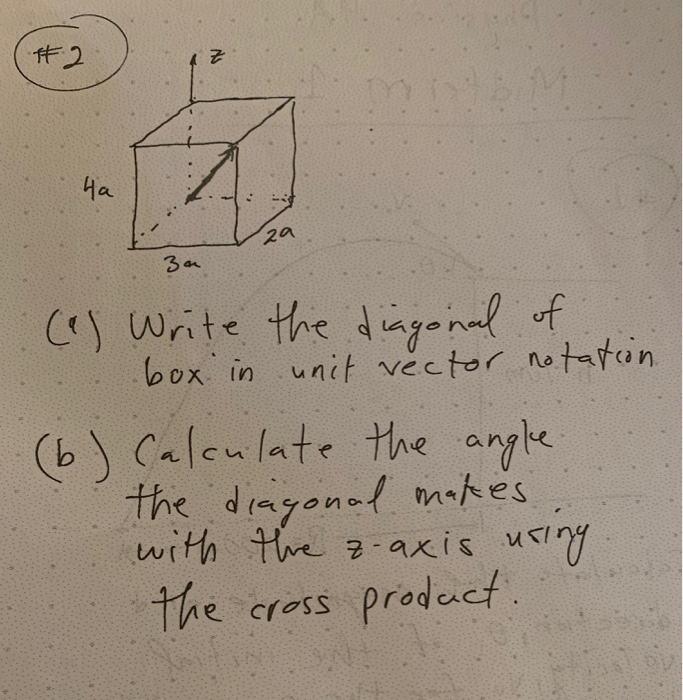 #2
z
4a
2a
3a
(a) Write the diagonal of
box in unit vector notation
(b) Calculate the angle
the diagonal makes
with the z-axis using
the cross product.